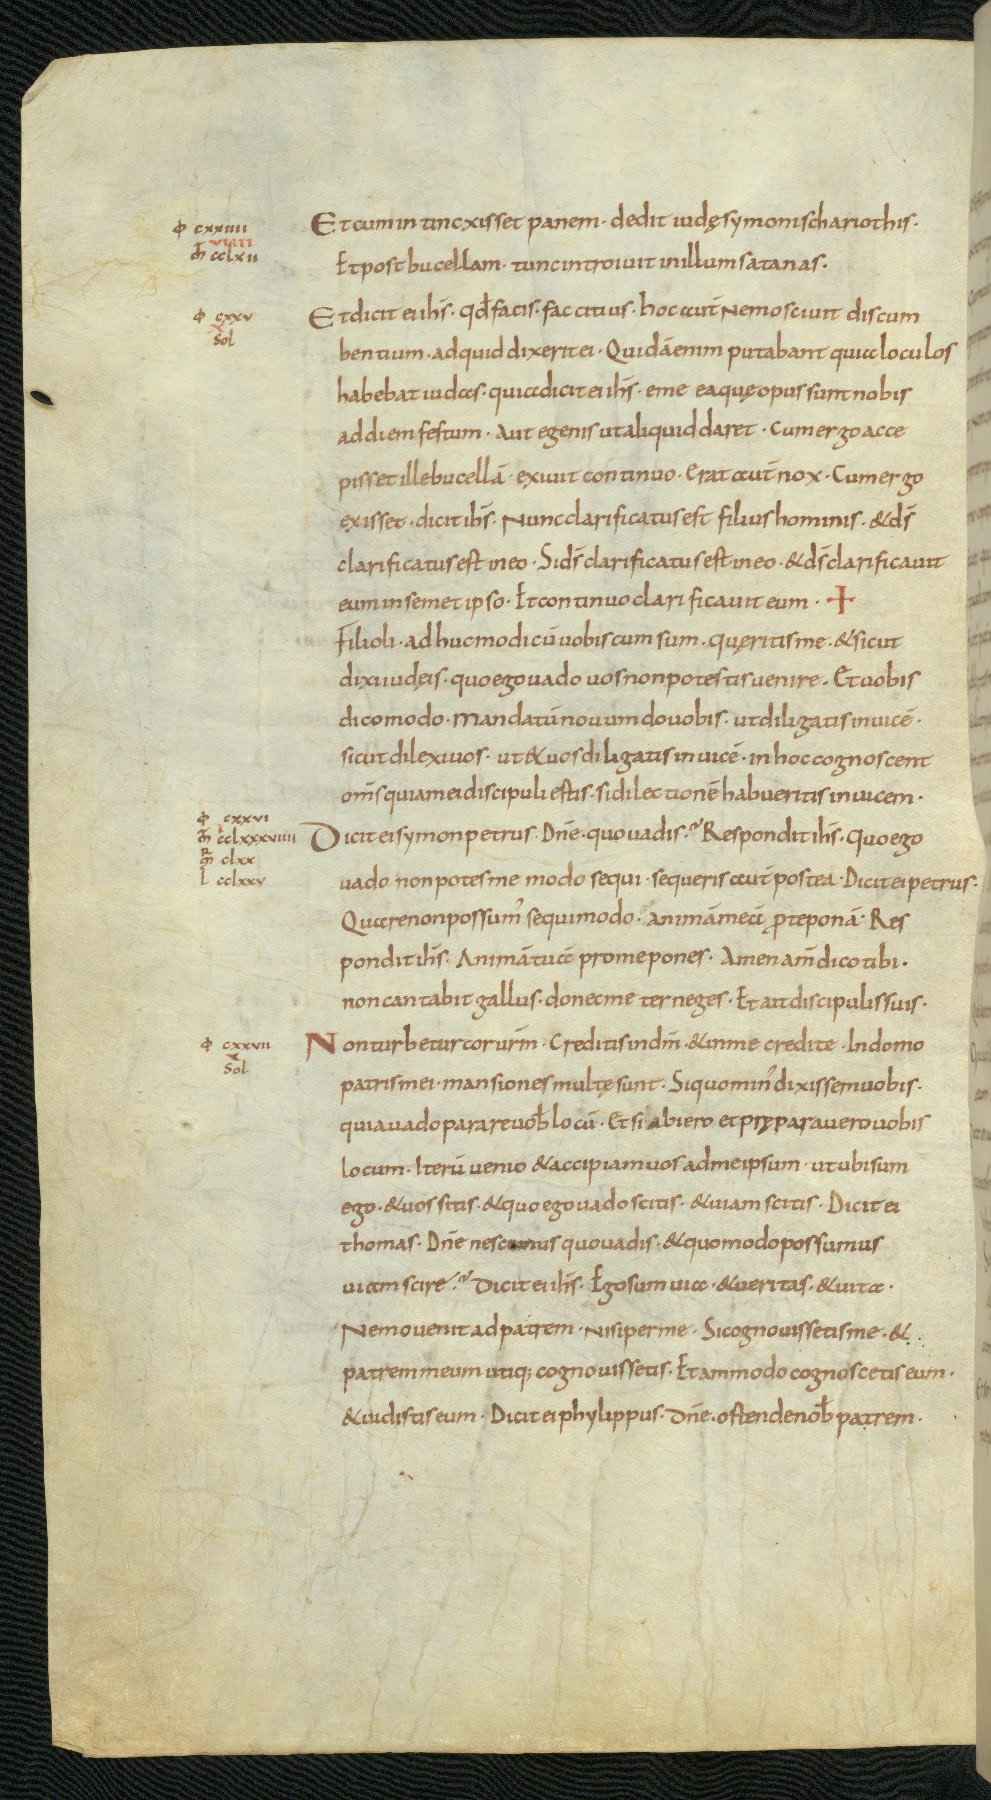 ɸ cxxiiii
viiii
m̄ cclxii
Et cum intincxisset panem · dedit iudę symonis chariothis ·
Et post bucellam · tunc introiuit in illum satanas ·
ɸ cxxv
x
Sol
Et dicit ei ih̄s · qd̄ facis · fac citius · hoc aut̄ Nemo sciuit discum
bentium · ad quid dixerit ei · Quidā enim putabant quia loculos
habebat iudas · quia dicit ei ih̄s · eme ea quę opus sunt nobis
ad diem festum · Aut egenis ut aliquid daret · Cum ergo acce
pisset ille bucellā · exiuit continuo · Erat aut̄ nox · Cum ergo
exisset · dicit ih̄s · Nunc clarificatus est filius hominis · & d̄s
clarificatus est in eo · Si d̄s clarificatus est in eo · & d̄s clarificauit
eum in semet ipso · Et continuo clarificauit eum · +
Filioli · ad huc modicū uobis cum sum · quęritis me · & sicut
dixi iudęis · quo ego uado uos non potestis uenire · Et uobis
dico modo · Mandatū nouum do uobis · ut diligatis inuicē ·
sicut dilexi uos · ut & uos diligatis inuicē · in hoc cognoscent
om̄s quia mei discipuli estis · si dilectionē habueritis inuicem ·
ɸ cxxvi
m̄ cclxxxviiii
m̄ clxx
l cclxxv
Dicit ei symon petrus · Dn̄e · quo uadis ·? Respondit ih̄s · Quo ego
uado non potes me modo sequi · sequeris aut̄ postea · Dicit ei petrus ·
Quare non possum᾽ sequi modo · Animā meā ꝓ te ponā · Res
pondit ih̄s · Animā tuā pro me pones · Amen am̄ dico tibi ·
non cantabit gallus · donec me ter neges · Et ait discipulis suis ·
ɸ cxxvii
x
Sol
Non turbetur cor ur̄m · Creditis in dm̄ · & in me credite · In domo
patris mei · mansiones multę sunt · Si quo min᾽ dixissem uobis ·
quia uado parare uob̄ locū · Et si abiero et pręparauero uobis
locum · Iterū uenio & accipiam uos ad me ipsum · ut ubi sum
ego · & uos sitis · & quo ego uado scitis · & uiam scitis · Dicit ei
thomas · Dn̄e nescimus quo uadis · & quomodo possumus
uiam scire ·? Dicit ei ih̄s · Ego sum uia · & ueritas · & uita ·
Nemo uenit ad patrem · Nisi per me · Si cognouissetis me · &
patrem meum utiq; cognouissetis · Et ammodo cognoscetis eum ·
& uidistis eum · Dicit ei phylippus · Dn̄e · ostende nob̄ patrem ·